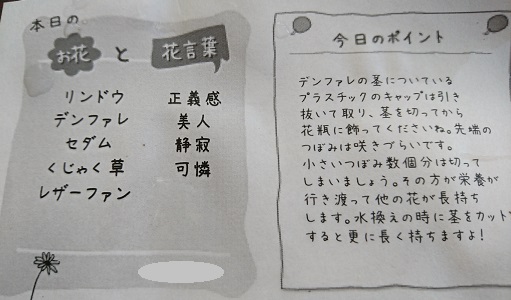 本日の
お花 と 花言葉
リンドウ 正義感
デンファレ 美人
セダム 静寂
くじゃく草 可憐
レザーファン
今日のポイント
デンファレの茎についている
プラスチックのキャップは引き
抜いて取り、茎を切ってから
花瓶に飾ってくださいね。先端の
つぼみは咲きづらいです。
小さいつぼみ数個分は切って
しまいましょう。その方が栄養が
行き渡って他の花が長持ち
します。水換えの時に茎をカット
すると更に長く持ちますよ!